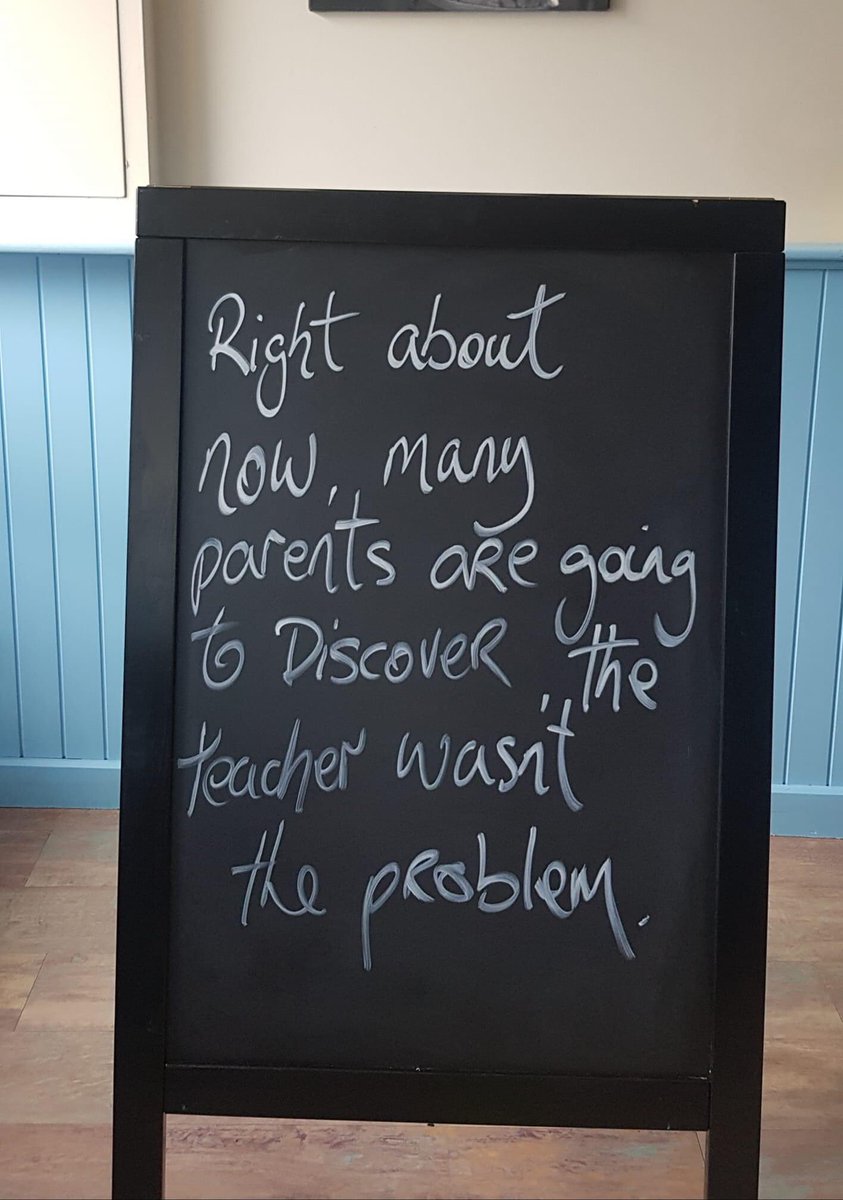 Right about
now, many
parents are going
to Discover, the
teacher wasn't
the problem.